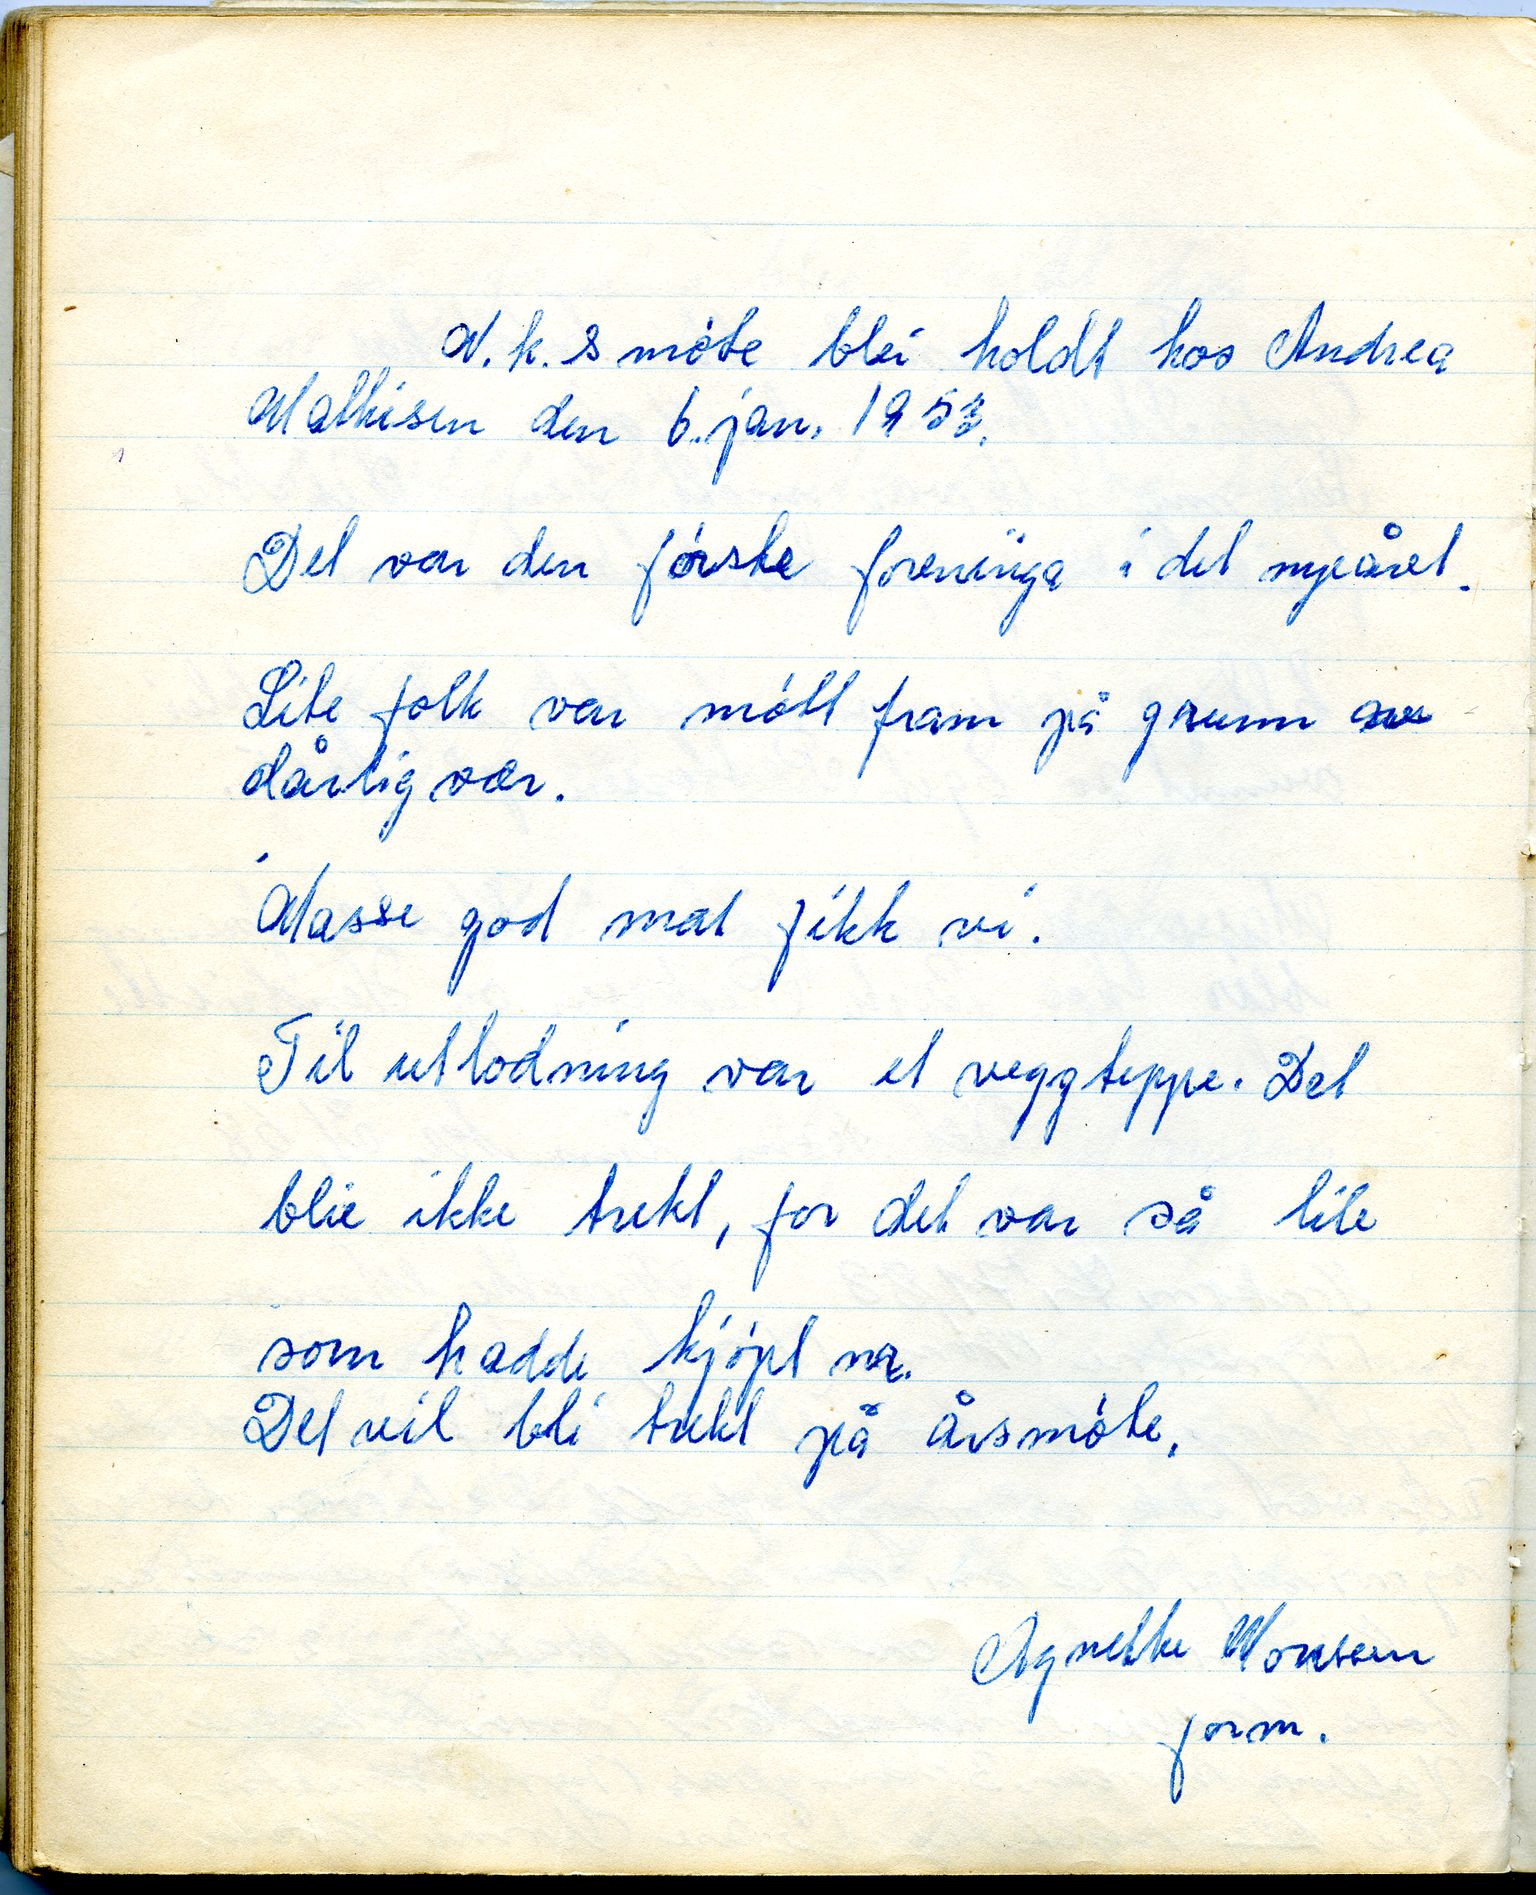 N.k.s møte blei holdt hos Andrea
Mathisen den 6. jan. 1953.
Det var den første foreninga i det nyeåret.
Lite folk var møtt fram på grunn av
dårlig vær.
Masse god mat fikk vi.
Til utlodning var et veggteppe. Det
blie ikke trekt, for det var så lite
som hadde kjøpt nr.
Det vil bli trekt på årsmøte.
Agnethe Monsen
form.